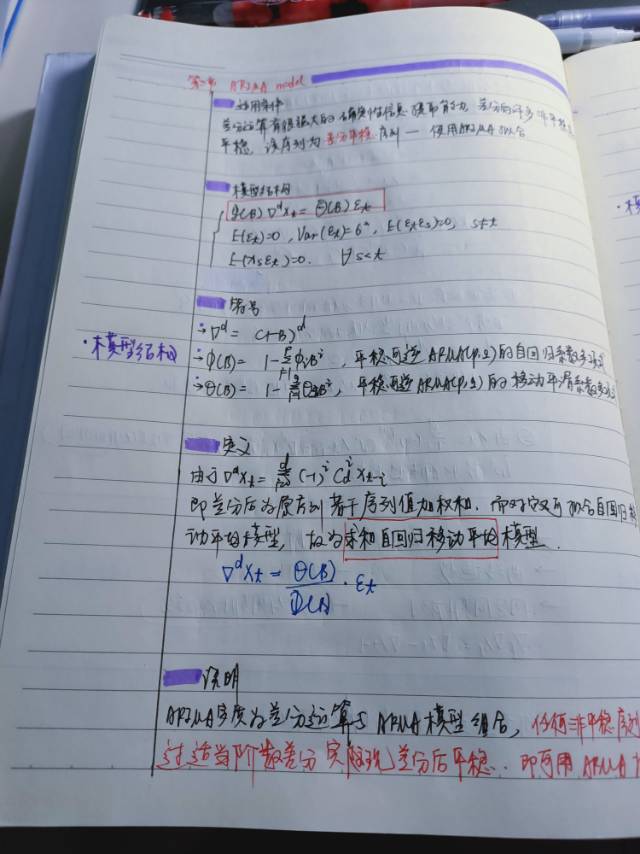 第二节 ARIMA model
适用条件
差分运算有很强大的确定性信息提取能力, 差分后许多非平稳
平稳, 该序列为差分平稳序列 — 使用ARIMA拟合
模型结构
Φ(B)∇^d x_t = Θ(B) ε_t
E(ε_t)=0, Var(ε_t)=σ², E(ε_t ε_s)=0, s≠t
E(x_s ε_t)=0. ∀ s<t
符号
∇^d = (1-B)^d
·模型结构
Φ(B) = 1-Σφ_i B^i, 平稳可逆ARMA(p,q)的自回归系数多项式
Θ(B) = 1-Σθ_i B^i, 平稳可逆ARMA(p,q)的移动平滑系数多项式
定义
由于∇^d x_t = Σ(-1)^i C_d^i x_{t-i}
即差分后为原序列若干序列值加权和, 而对它又可拟合自回归移
动平均模型, 故为求和自回归移动平均模型.
∇^d x_t = Θ(B)/Φ(B) · ε_t
说明
ARIMA实质为差分运算与ARMA模型组合, 任何非平稳序列
过适当阶数差分实现差分后平稳. 即可用ARIMA